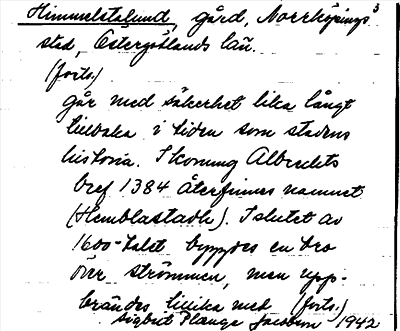 Himmelstalund, gård, Norrköpings 3
stad, Östergötlands län.
(forts.)
går med säkerhet lika långt
tillbaka i tiden som stadens
historia. I konung Albrechts
bref 1384 återfinnes namnet
(Hemblastadh). I slutet av
1600-talet byggdes en bro
över strömmen, men upp-
brändes tillika med (forts.)
1942